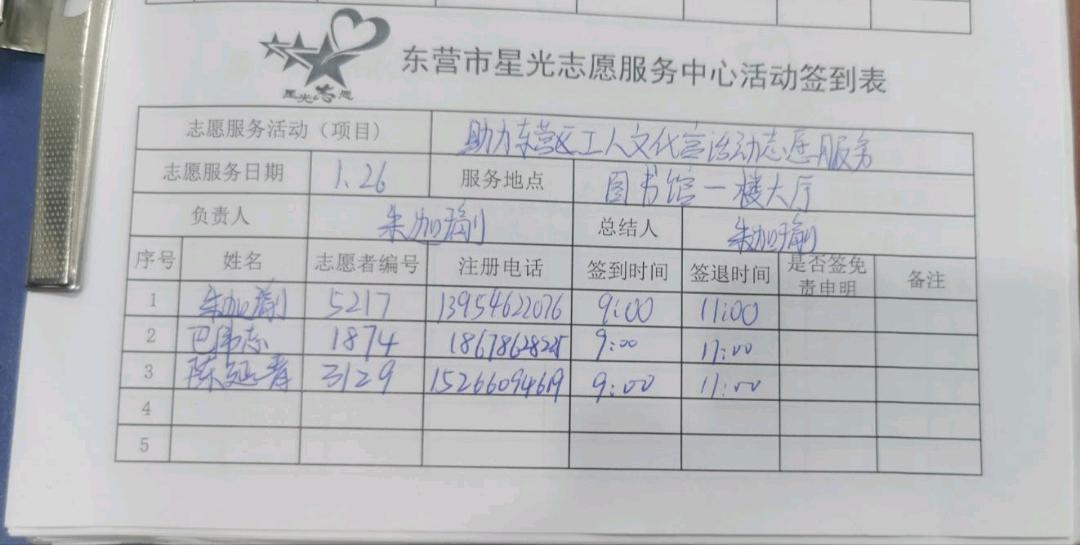 星光志愿
东营市星光志愿服务中心活动签到表
志愿服务活动（项目） 助力东营区工人文化宫活动志愿服务
志愿服务日期 1.26 服务地点 图书馆一楼大厅
负责人 朱加 总结人 朱加
序号 姓名 志愿者编号 注册电话 签到时间 签退时间 是否签免责申明 备注
1 朱加 5217 13954622076 9:00 11:00
2 巴伟志 1874 18678628225 9:00 11:00
3 陈延青 3129 15266094619 9:00 11:00
4
5